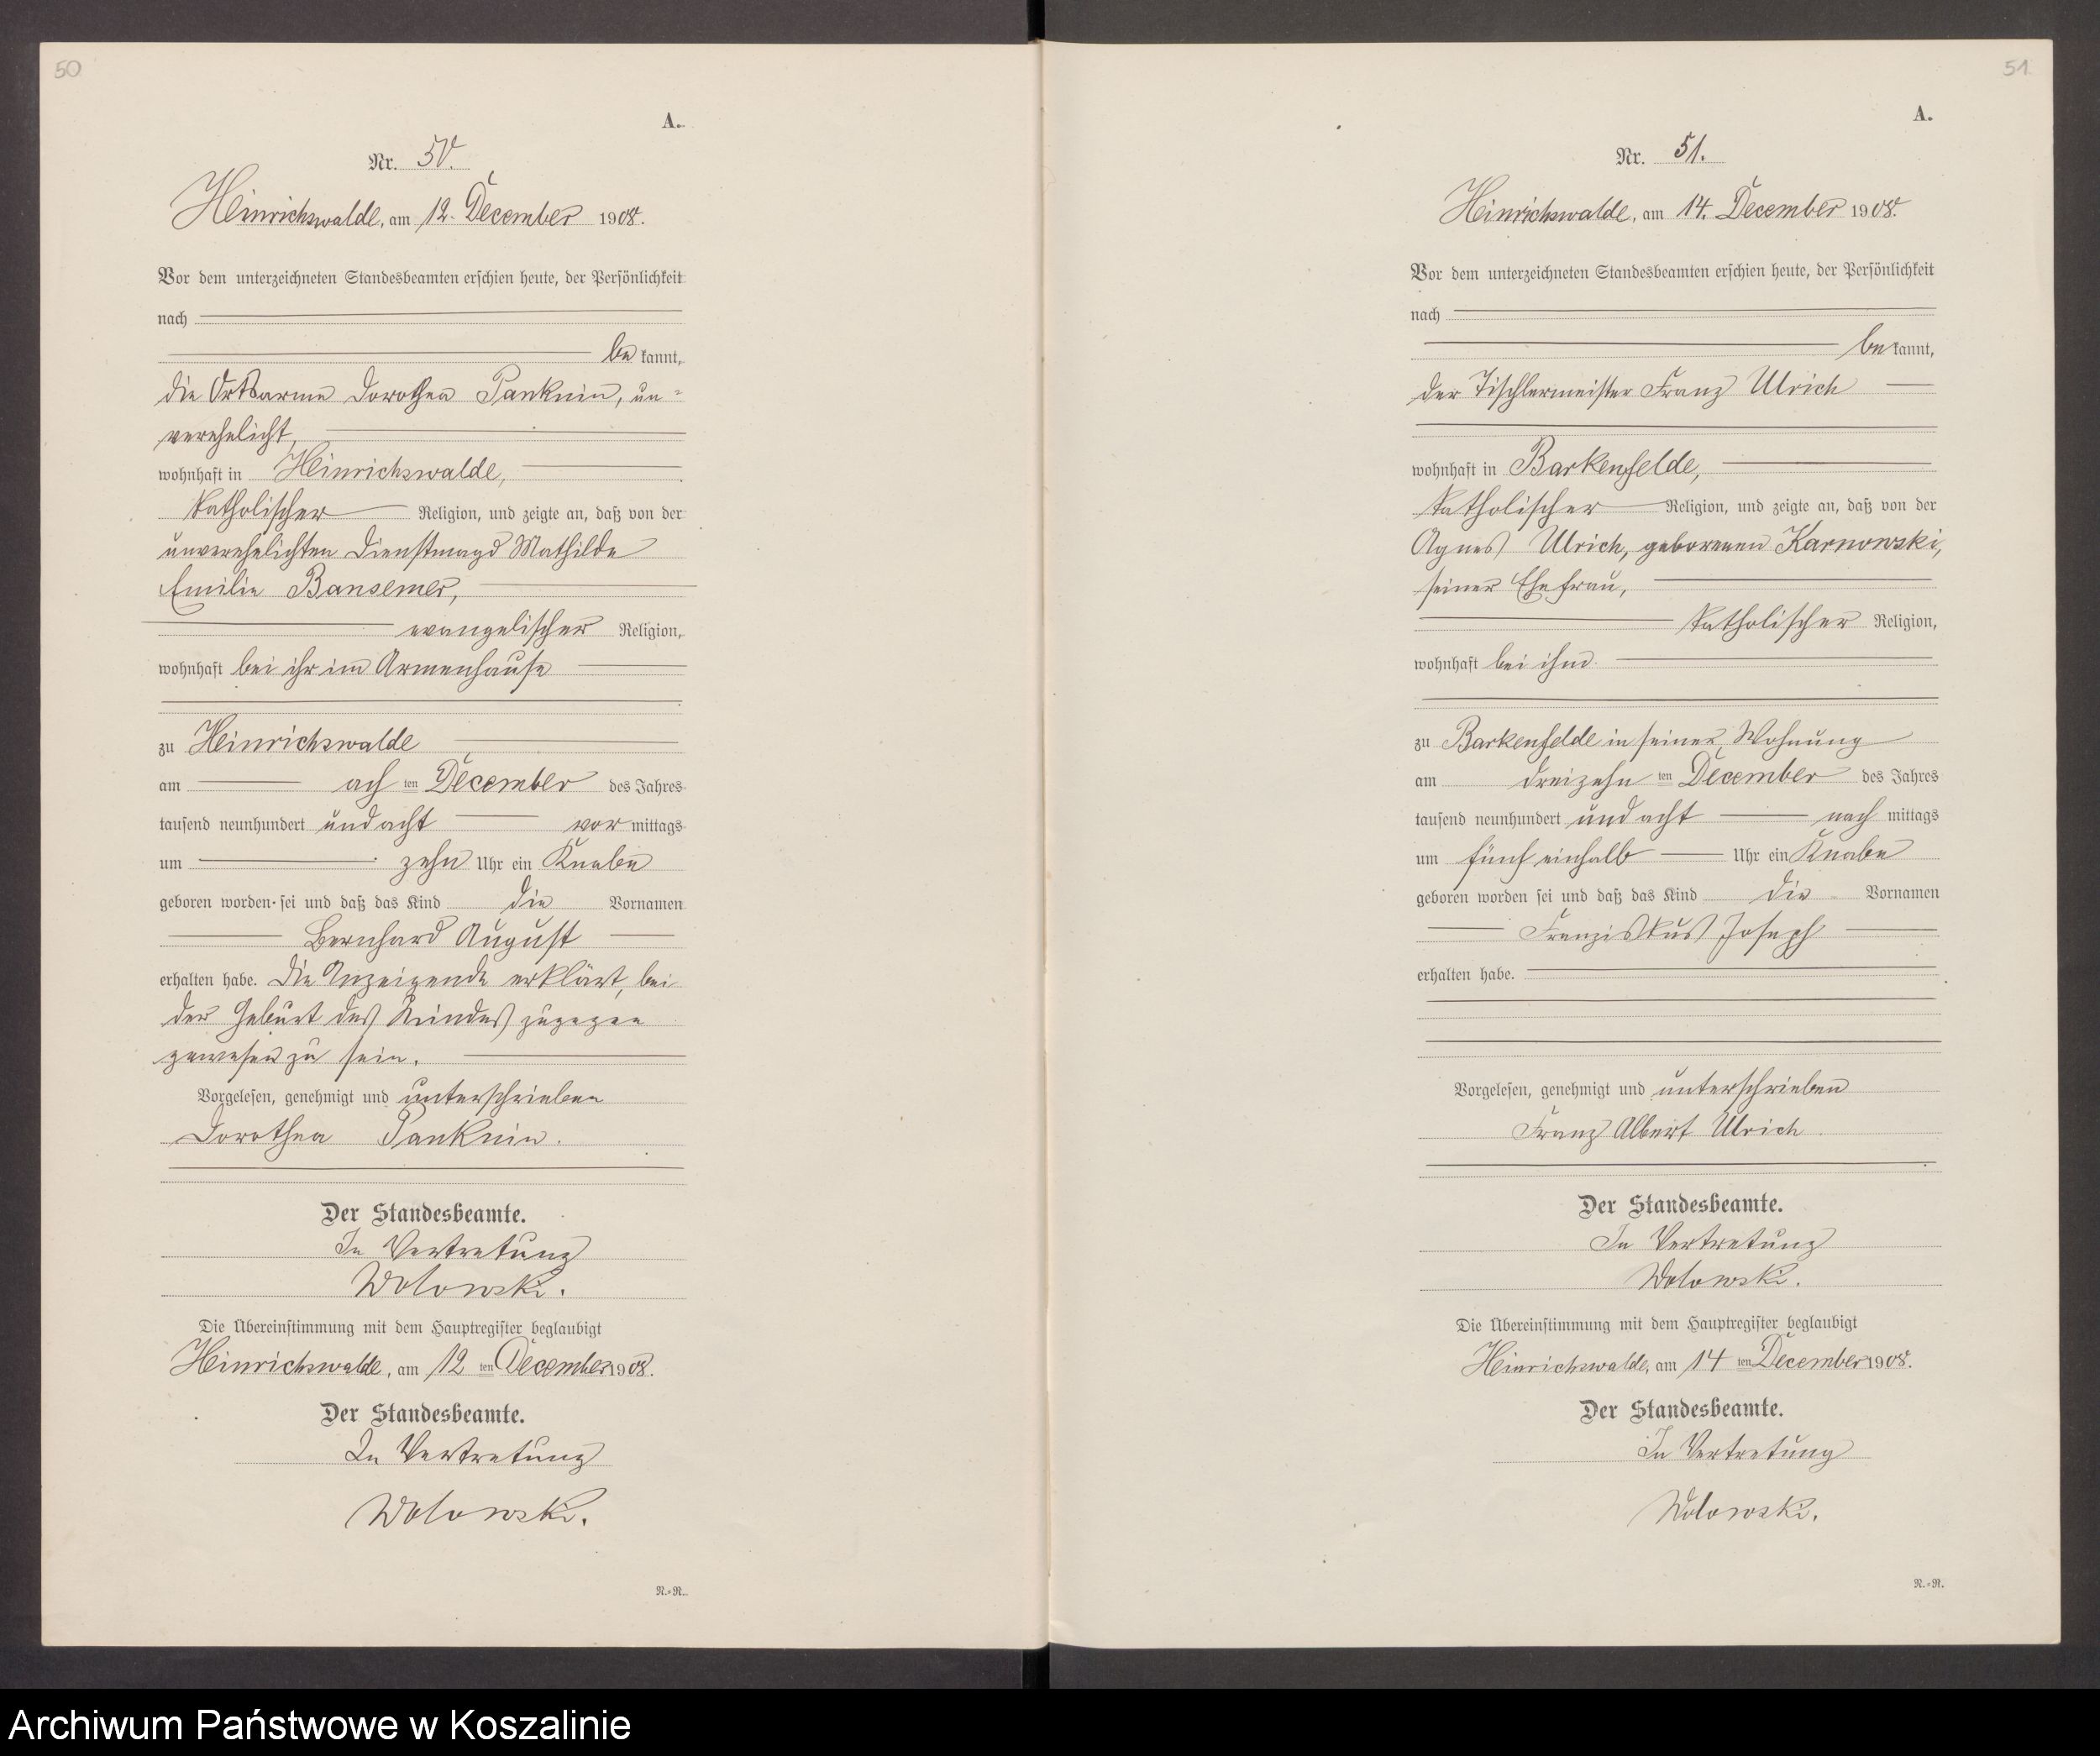 50
A.
Nr. 50.
Heinrichswalde, am 12. December 1908.
Vor dem unterzeichneten Standesbeamten erschien heute, der Persönlichkeit
nach
be kannt,
die Ortsarme Dorothea Panknin, un=
verehelicht,
wohnhaft in Heinrichswalde,
katholischer Religion, und zeigte an, daß von der
unverehelichten Dienstmagd Mathilde
Emilie Bansemer,
evangelischer Religion,
wohnhaft bei ihr im Armenhause
zu Heinrichswalde
am ach ten December des Jahres
tausend neunhundert und acht vor mittags
um zehn Uhr ein Knabe
geboren worden sei und daß das Kind die Vornamen
Bernhard August
erhalten habe. Die Anzeigende erklärt, bei
der Geburt des Kindes zugegen
gewesen zu sein.
Vorgelesen, genehmigt und unterschrieben
Dorothea Panknin.
Der Standesbeamte.
In Vertretung
Wolowski.
Die Übereinstimmung mit dem Hauptregister beglaubigt
Heinrichswalde, am 12 ten December 1908.
Der Standesbeamte.
In Vertretung
Wolowski.
N.=R.
51
A.
Nr. 51.
Heinrichswalde, am 14. December 1908.
Vor dem unterzeichneten Standesbeamten erschien heute, der Persönlichkeit
nach
be kannt,
der Tischlermeister Franz Ulrich
wohnhaft in Barkenfelde,
katholischer Religion, und zeigte an, daß von der
Agnes Ulrich, geborenen Karnowski,
seiner Ehefrau,
katholischer Religion,
wohnhaft bei ihm
zu Barkenfelde in seiner Wohnung
am dreizehn ten December des Jahres
tausend neunhundert und acht nach mittags
um fünf einhalb Uhr ein Knabe
geboren worden sei und daß das Kind die Vornamen
Franziskus Joseph
erhalten habe.
Vorgelesen, genehmigt und unterschrieben
Franz Albert Ulrich
Der Standesbeamte.
In Vertretung
Wolowski.
Die Übereinstimmung mit dem Hauptregister beglaubigt
Heinrichswalde, am 14 ten December 1908.
Der Standesbeamte.
In Vertretung
Wolowski.
N.=R.
Archiwum Państwowe w Koszalinie